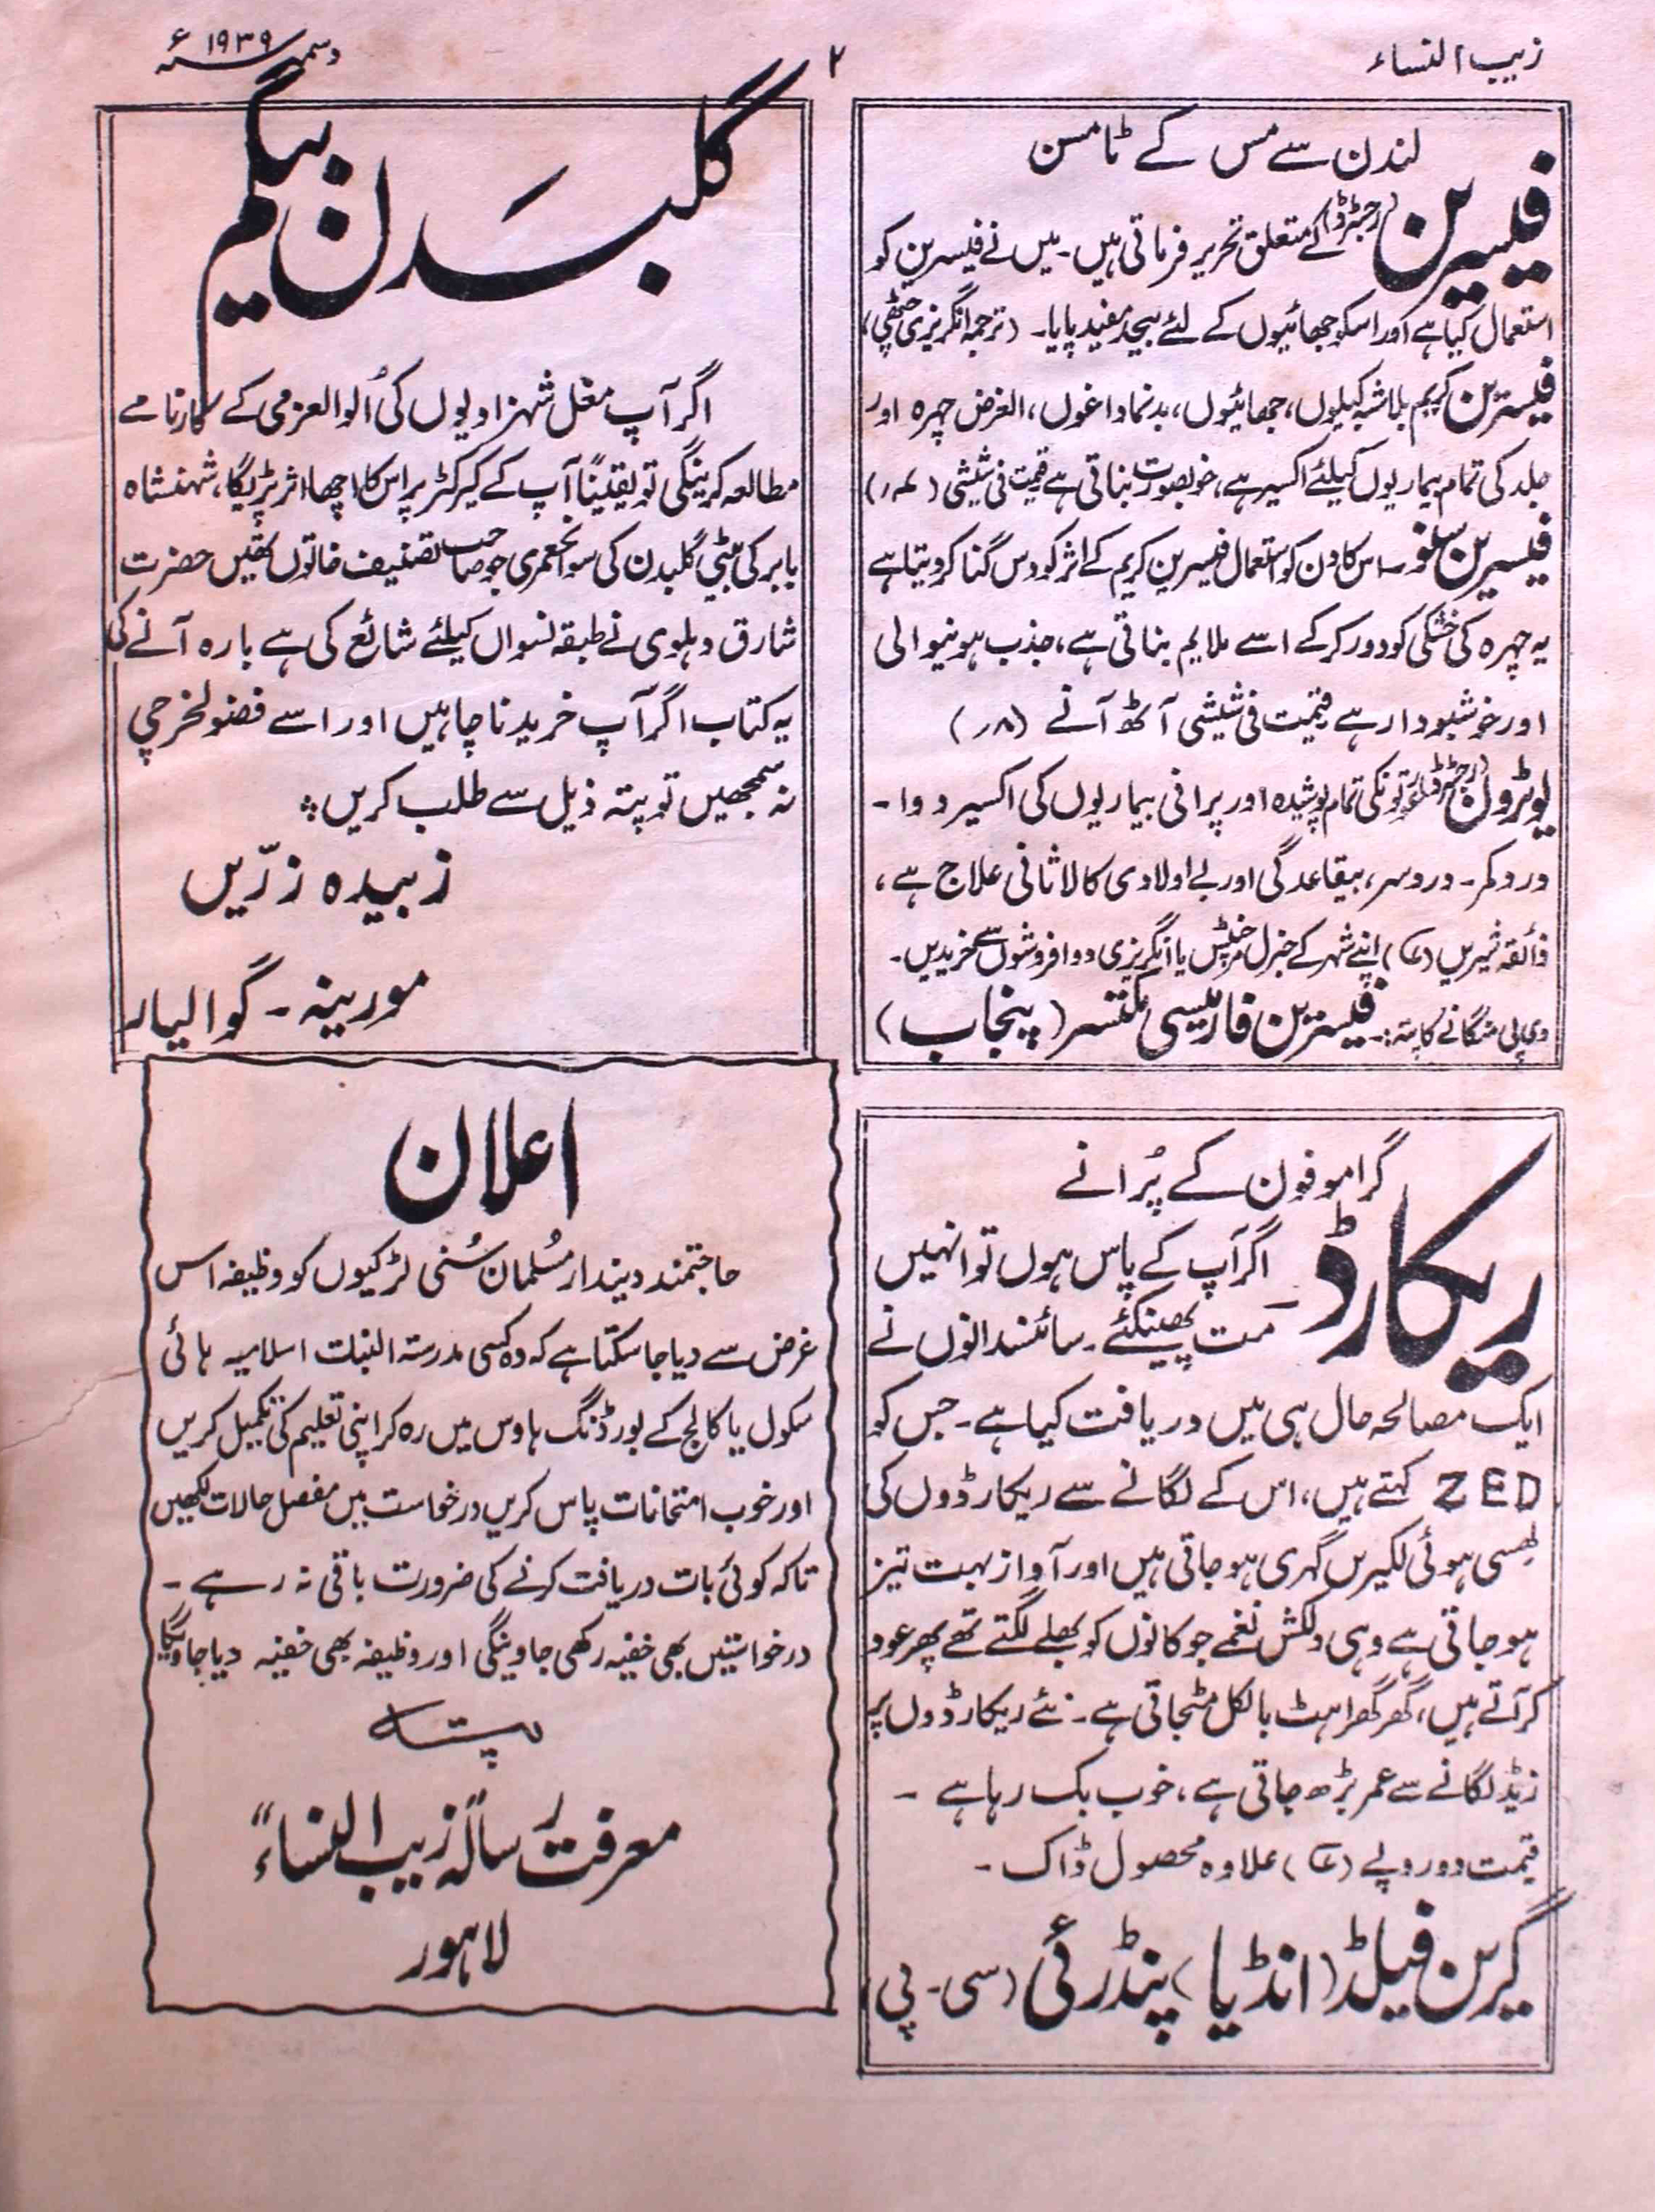 زیب النساء
۲
دسمبر ۱۹۳۹ء
لندن سے مس کے ٹامسن
فیسرین (رجسٹرڈ) کے متعلق تحریر فرماتی ہیں۔ میں نے فیسرین کو
استعمال کیا ہے اور اسکو جھائیوں کے لئے بیحد مفید پایا۔ (ترجمہ انگریزی چٹھی)
فیسرین کریم بلاشبہ کیلوں، جھائیوں، بدنما داغوں، الغرض چہرہ اور
جلد کی تمام بیماریوں کیلئے اکسیر ہے، خوبصورت بناتی ہے قیمت فی شیشی
فیسرین سنو۔ اس کا دن کو استعمال فیسرین کریم کے اثر کو دس گنا کر دیتا ہے
یہ چہرہ کی خشکی کو دور کرکے اسے ملایم بناتی ہے، جذب ہونیوالی
اور خوشبودار ہے قیمت فی شیشی آٹھ آنے (۸؍)
یوٹرول (رجسٹرڈ) عورتونکی تمام پوشیدہ اور پرانی بیماریوں کی اکسیر دوا۔
درد کمر۔ درد سر، بیقاعدگی اور بے اولادی کا لاثانی علاج ہے،
ذائقہ شیریں اپنے شہر کے جنرل مرچنٹس یا انگریزی دوا فروشوں سے خریدیں۔
وی پی منگانے کا پتہ:۔ فیسرین فارمیسی مکتسر (پنجاب)
گرامو فون کے پُرانے
ریکارڈ اگر آپ کے پاس ہوں تو انہیں
مت پھینکئے۔ سائنسدانوں نے
ایک مصالحہ حال ہی میں دریافت کیا ہے۔ جس کو
ZED کہتے ہیں، اس کے لگانے سے ریکارڈوں کی
گھسی ہوئی لکیریں گہری ہو جاتی ہیں اور آواز بہت تیز
ہو جاتی ہے وہی دلکش نغمے جو کانوں کو بھلے لگتے تھے پھر عود
کر آتے ہیں، گھر گھراہٹ بالکل مٹجاتی ہے۔ نئے ریکارڈوں پر
زیڈ لگانے سے عمر بڑھ جاتی ہے، خوب بک رہا ہے۔
قیمت دو روپے علاوہ محصول ڈاک۔
گرین فیلڈ (انڈیا) پنڈرئی (سی۔ پی)
گلبدن بیگم
اگر آپ مغل شہزادیوں کی اُلوالعزمی کے کارنامے
مطالعہ کرینگی تو یقیناً آپ کے کیرکٹر پر اس کا اچھا اثر پڑیگا، شہنشاہ
بابر کی بیٹی گلبدن کی سوانحعمری جو صاحب تصنیف خاتون تھیں حضرت
شارق دہلوی نے طبقہ نسواں کیلئے شائع کی ہے بارہ آنے کی
یہ کتاب اگر آپ خریدنا چاہیں اور اسے فضولخرچی
نہ سمجھیں تو پتہ ذیل سے طلب کریں
زبیدہ زرّیں
مورینہ۔ گوالیار
اعلان
حاجتمند دیندار مُسلمان سُنی لڑکیوں کو وظیفہ اس
غرض سے دیا جا سکتا ہے کہ وہ کسی مدرستہ البنات اسلامیہ ہائی
سکول یا کالج کے بورڈنگ ہاوس میں رہ کر اپنی تعلیم کی تکمیل کریں
اور خوب امتحانات پاس کریں درخواست میں مفصل حالات لکھیں
تاکہ کوئی بات دریافت کرنے کی ضرورت باقی نہ رہے۔
درخواستیں بھی خفیہ رکھی جاوینگی اور وظیفہ بھی خفیہ دیا جاویگا
پتہ
معرفت رسالہ "زیب النساء"
لاہور